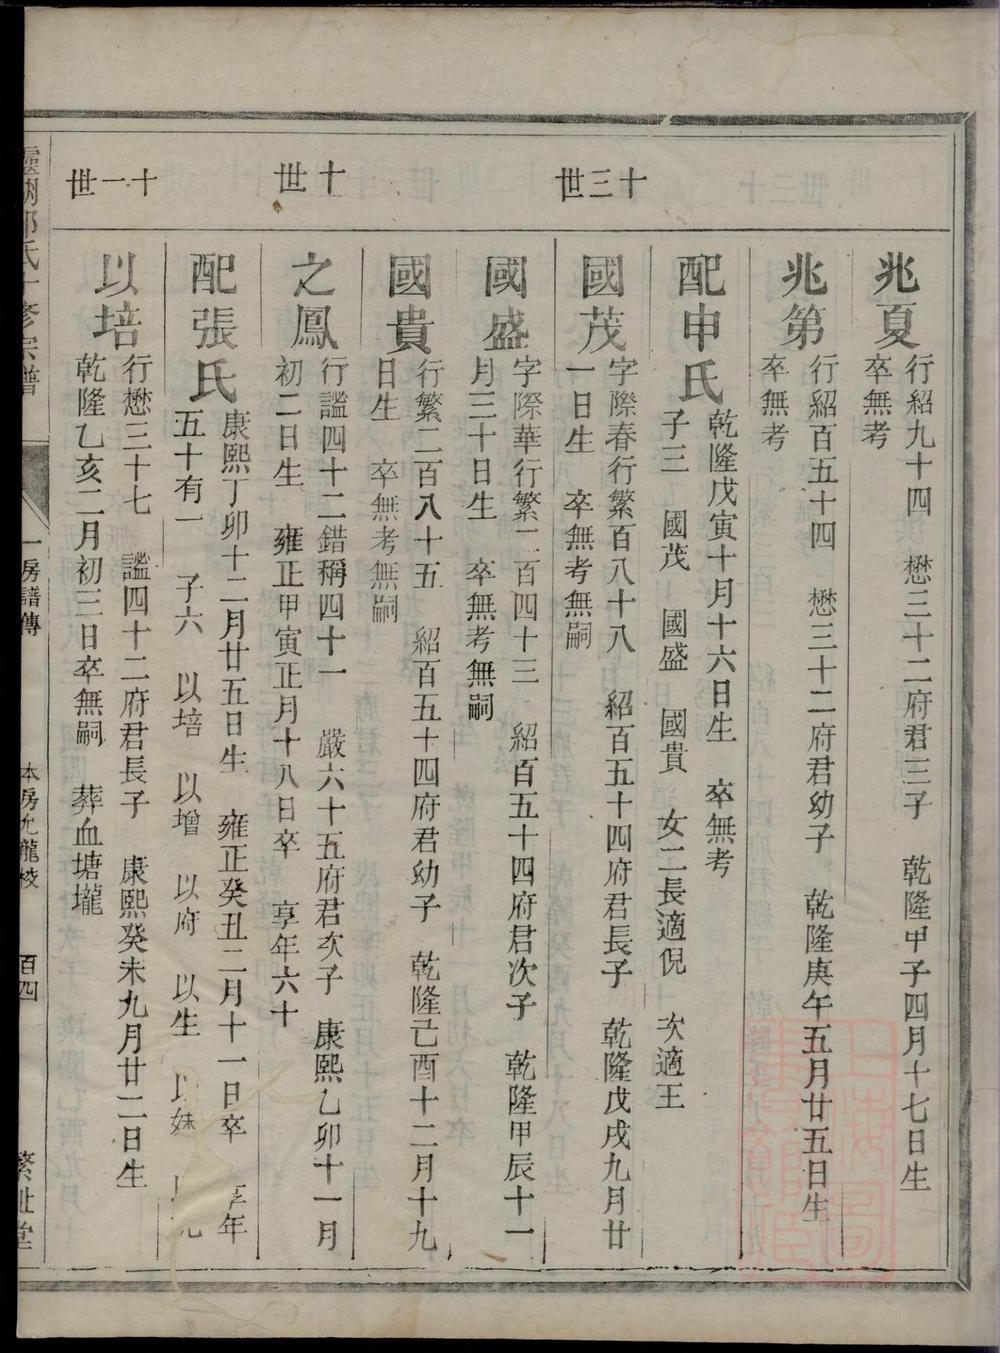 兆夏
行紹九十四　懋三十二府君三子　乾隆甲子四月十七日生
卒無考
兆第
行紹百五十四　懋三十二府君幼子　乾隆庚午五月廿五日生
卒無考
配申氏
乾隆戊寅十月十六日生　卒無考
子三　國茂　國盛　國貴　女二長適倪　次適王
十三世
國茂
字際春行繁百八十八　紹百五十四府君長子　乾隆戊戌九月廿
一日生　卒無考無嗣
國盛
字際華行繁二百四十三　紹百五十四府君次子　乾隆甲辰十一
月三十日生　卒無考無嗣
國貴
行繁二百八十五　紹百五十四府君幼子　乾隆己酉十二月十九
日生　卒無考無嗣
十世
之鳳
行謐四十二錯稱四十一　嚴六十五府君次子　康熙乙卯十一月
初二日生　雍正甲寅正月十八日卒　享年六十
配張氏
康熙丁卯十二月廿五日生　雍正癸丑二月十一日卒　享年
五十有一　子六　以培　以增　以府　以生　以妹
十一世
以培
行懋三十七　謐四十二府君長子　康熙癸未九月廿二日生
乾隆乙亥二月初三日卒無嗣　葬血塘壠
氏十修宗譜
一房譜傳
本房允龍校
百四
繁祉堂